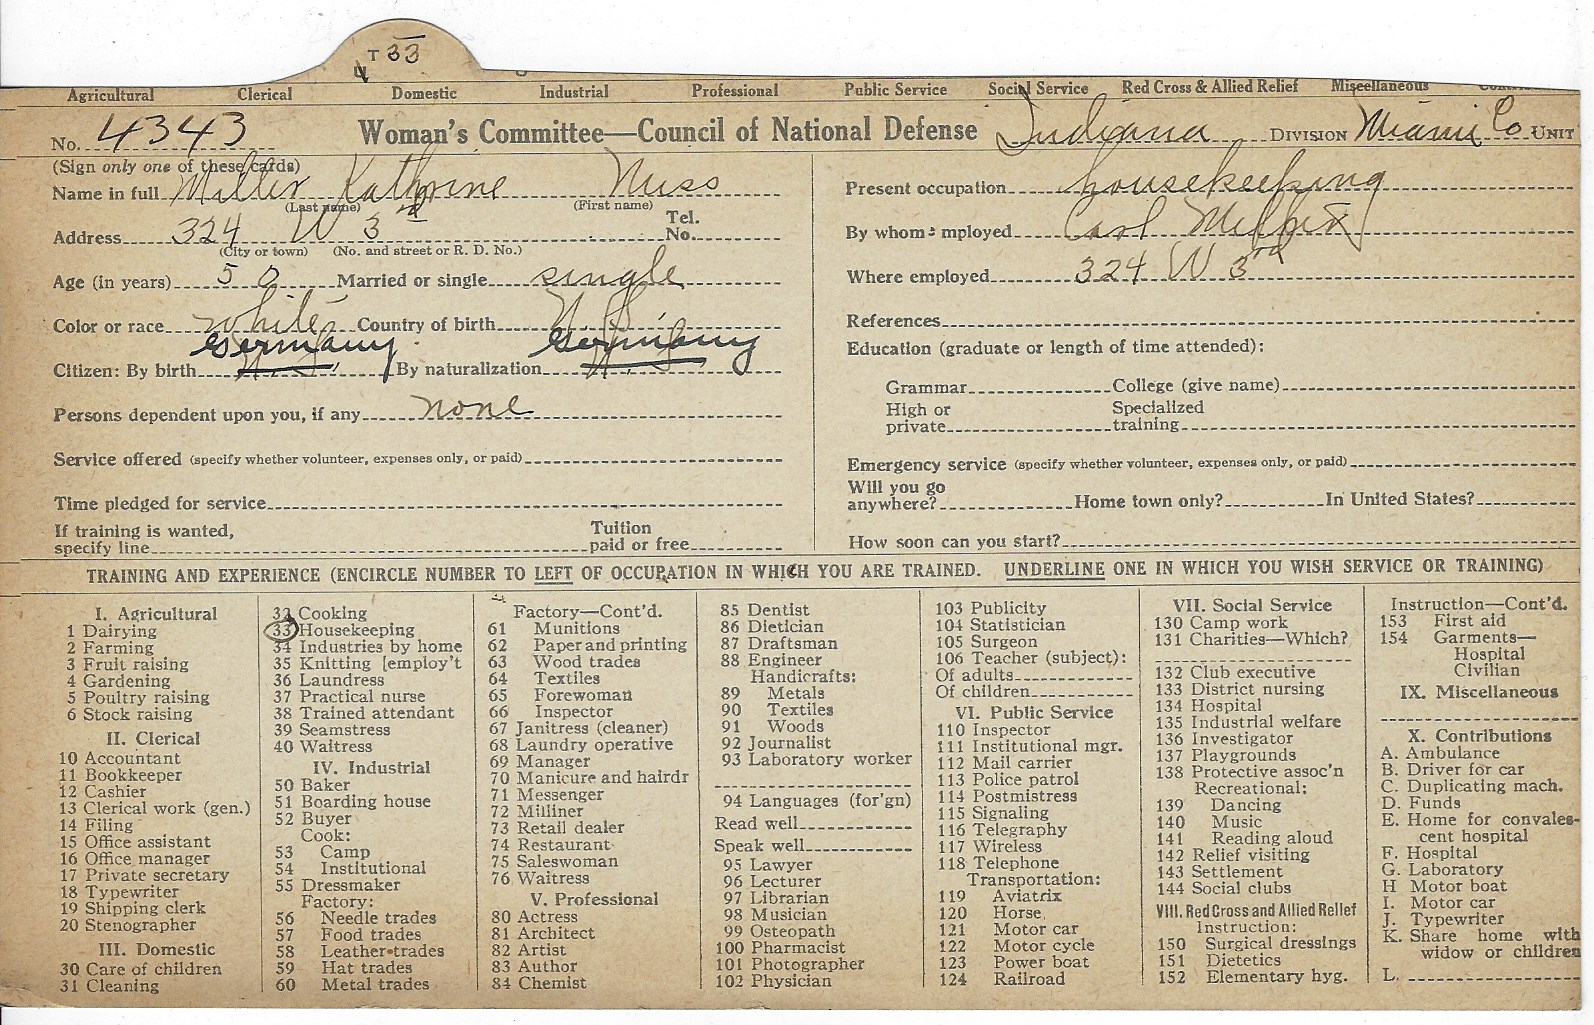 T 33
Agricultural Clerical Domestic Industrial Professional Public Service Social Service Red Cross & Allied Relief Miscellaneous
No. 4343 Woman's Committee—Council of National Defense Indiana DIVISION Miami Co UNIT
(Sign only one of these cards)
Name in full Miller Kathrine Miss
(Last name) (First name)
Address 324 W 3rd Tel. No.
(City or town) (No. and street or R. D. No.)
Age (in years) 50 Married or single single
Color or race white Country of birth
Germany Germany
Citizen: By birth By naturalization
Persons dependent upon you, if any none
Service offered (specify whether volunteer, expenses only, or paid)
Time pledged for service
If training is wanted, specify line Tuition paid or free
Present occupation housekeeping
By whom employed Carl
Where employed 324 W 3rd
References
Education (graduate or length of time attended):
Grammar College (give name)
High or private Specialized training
Emergency service (specify whether volunteer, expenses only, or paid)
Will you go anywhere? Home town only? In United States?
How soon can you start?
TRAINING AND EXPERIENCE (ENCIRCLE NUMBER TO LEFT OF OCCUPATION IN WHICH YOU ARE TRAINED. UNDERLINE ONE IN WHICH YOU WISH SERVICE OR TRAINING)
I. Agricultural
1 Dairying
2 Farming
3 Fruit raising
4 Gardening
5 Poultry raising
6 Stock raising
II. Clerical
10 Accountant
11 Bookkeeper
12 Cashier
13 Clerical work (gen.)
14 Filing
15 Office assistant
16 Office manager
17 Private secretary
18 Typewriter
19 Shipping clerk
20 Stenographer
III. Domestic
30 Care of children
31 Cleaning
32 Cooking
33 Housekeeping
34 Industries by home
35 Knitting [employ't
36 Laundress
37 Practical nurse
38 Trained attendant
39 Seamstress
40 Waitress
IV. Industrial
50 Baker
51 Boarding house
52 Buyer
Cook:
53 Camp
54 Institutional
55 Dressmaker
Factory:
56 Needle trades
57 Food trades
58 Leather trades
59 Hat trades
60 Metal trades
Factory—Cont'd.
61 Munitions
62 Paper and printing
63 Wood trades
64 Textiles
65 Forewoman
66 Inspector
67 Janitress (cleaner)
68 Laundry operative
69 Manager
70 Manicure and hairdr
71 Messenger
72 Milliner
73 Retail dealer
74 Restaurant
75 Saleswoman
76 Waitress
V. Professional
80 Actress
81 Architect
82 Artist
83 Author
84 Chemist
85 Dentist
86 Dietician
87 Draftsman
88 Engineer
Handicrafts:
89 Metals
90 Textiles
91 Woods
92 Journalist
93 Laboratory worker
94 Languages (for'gn)
Read well
Speak well
95 Lawyer
96 Lecturer
97 Librarian
98 Musician
99 Osteopath
100 Pharmacist
101 Photographer
102 Physician
103 Publicity
104 Statistician
105 Surgeon
106 Teacher (subject):
Of adults
Of children
VI. Public Service
110 Inspector
111 Institutional mgr.
112 Mail carrier
113 Police patrol
114 Postmistress
115 Signaling
116 Telegraphy
117 Wireless
118 Telephone
Transportation:
119 Aviatrix
120 Horse
121 Motor car
122 Motor cycle
123 Power boat
124 Railroad
VII. Social Service
130 Camp work
131 Charities—Which?
132 Club executive
133 District nursing
134 Hospital
135 Industrial welfare
136 Investigator
137 Playgrounds
138 Protective assoc'n
Recreational:
139 Dancing
140 Music
141 Reading aloud
142 Relief visiting
143 Settlement
144 Social clubs
VIII. Red Cross and Allied Relief
Instruction:
150 Surgical dressings
151 Dietetics
152 Elementary hyg.
Instruction—Cont'd.
153 First aid
154 Garments—
Hospital
Civilian
IX. Miscellaneous
X. Contributions
A. Ambulance
B. Driver for car
C. Duplicating mach.
D. Funds
E. Home for convales-
cent hospital
F. Hospital
G. Laboratory
H Motor boat
I. Motor car
J. Typewriter
K. Share home with
widow or children
L.